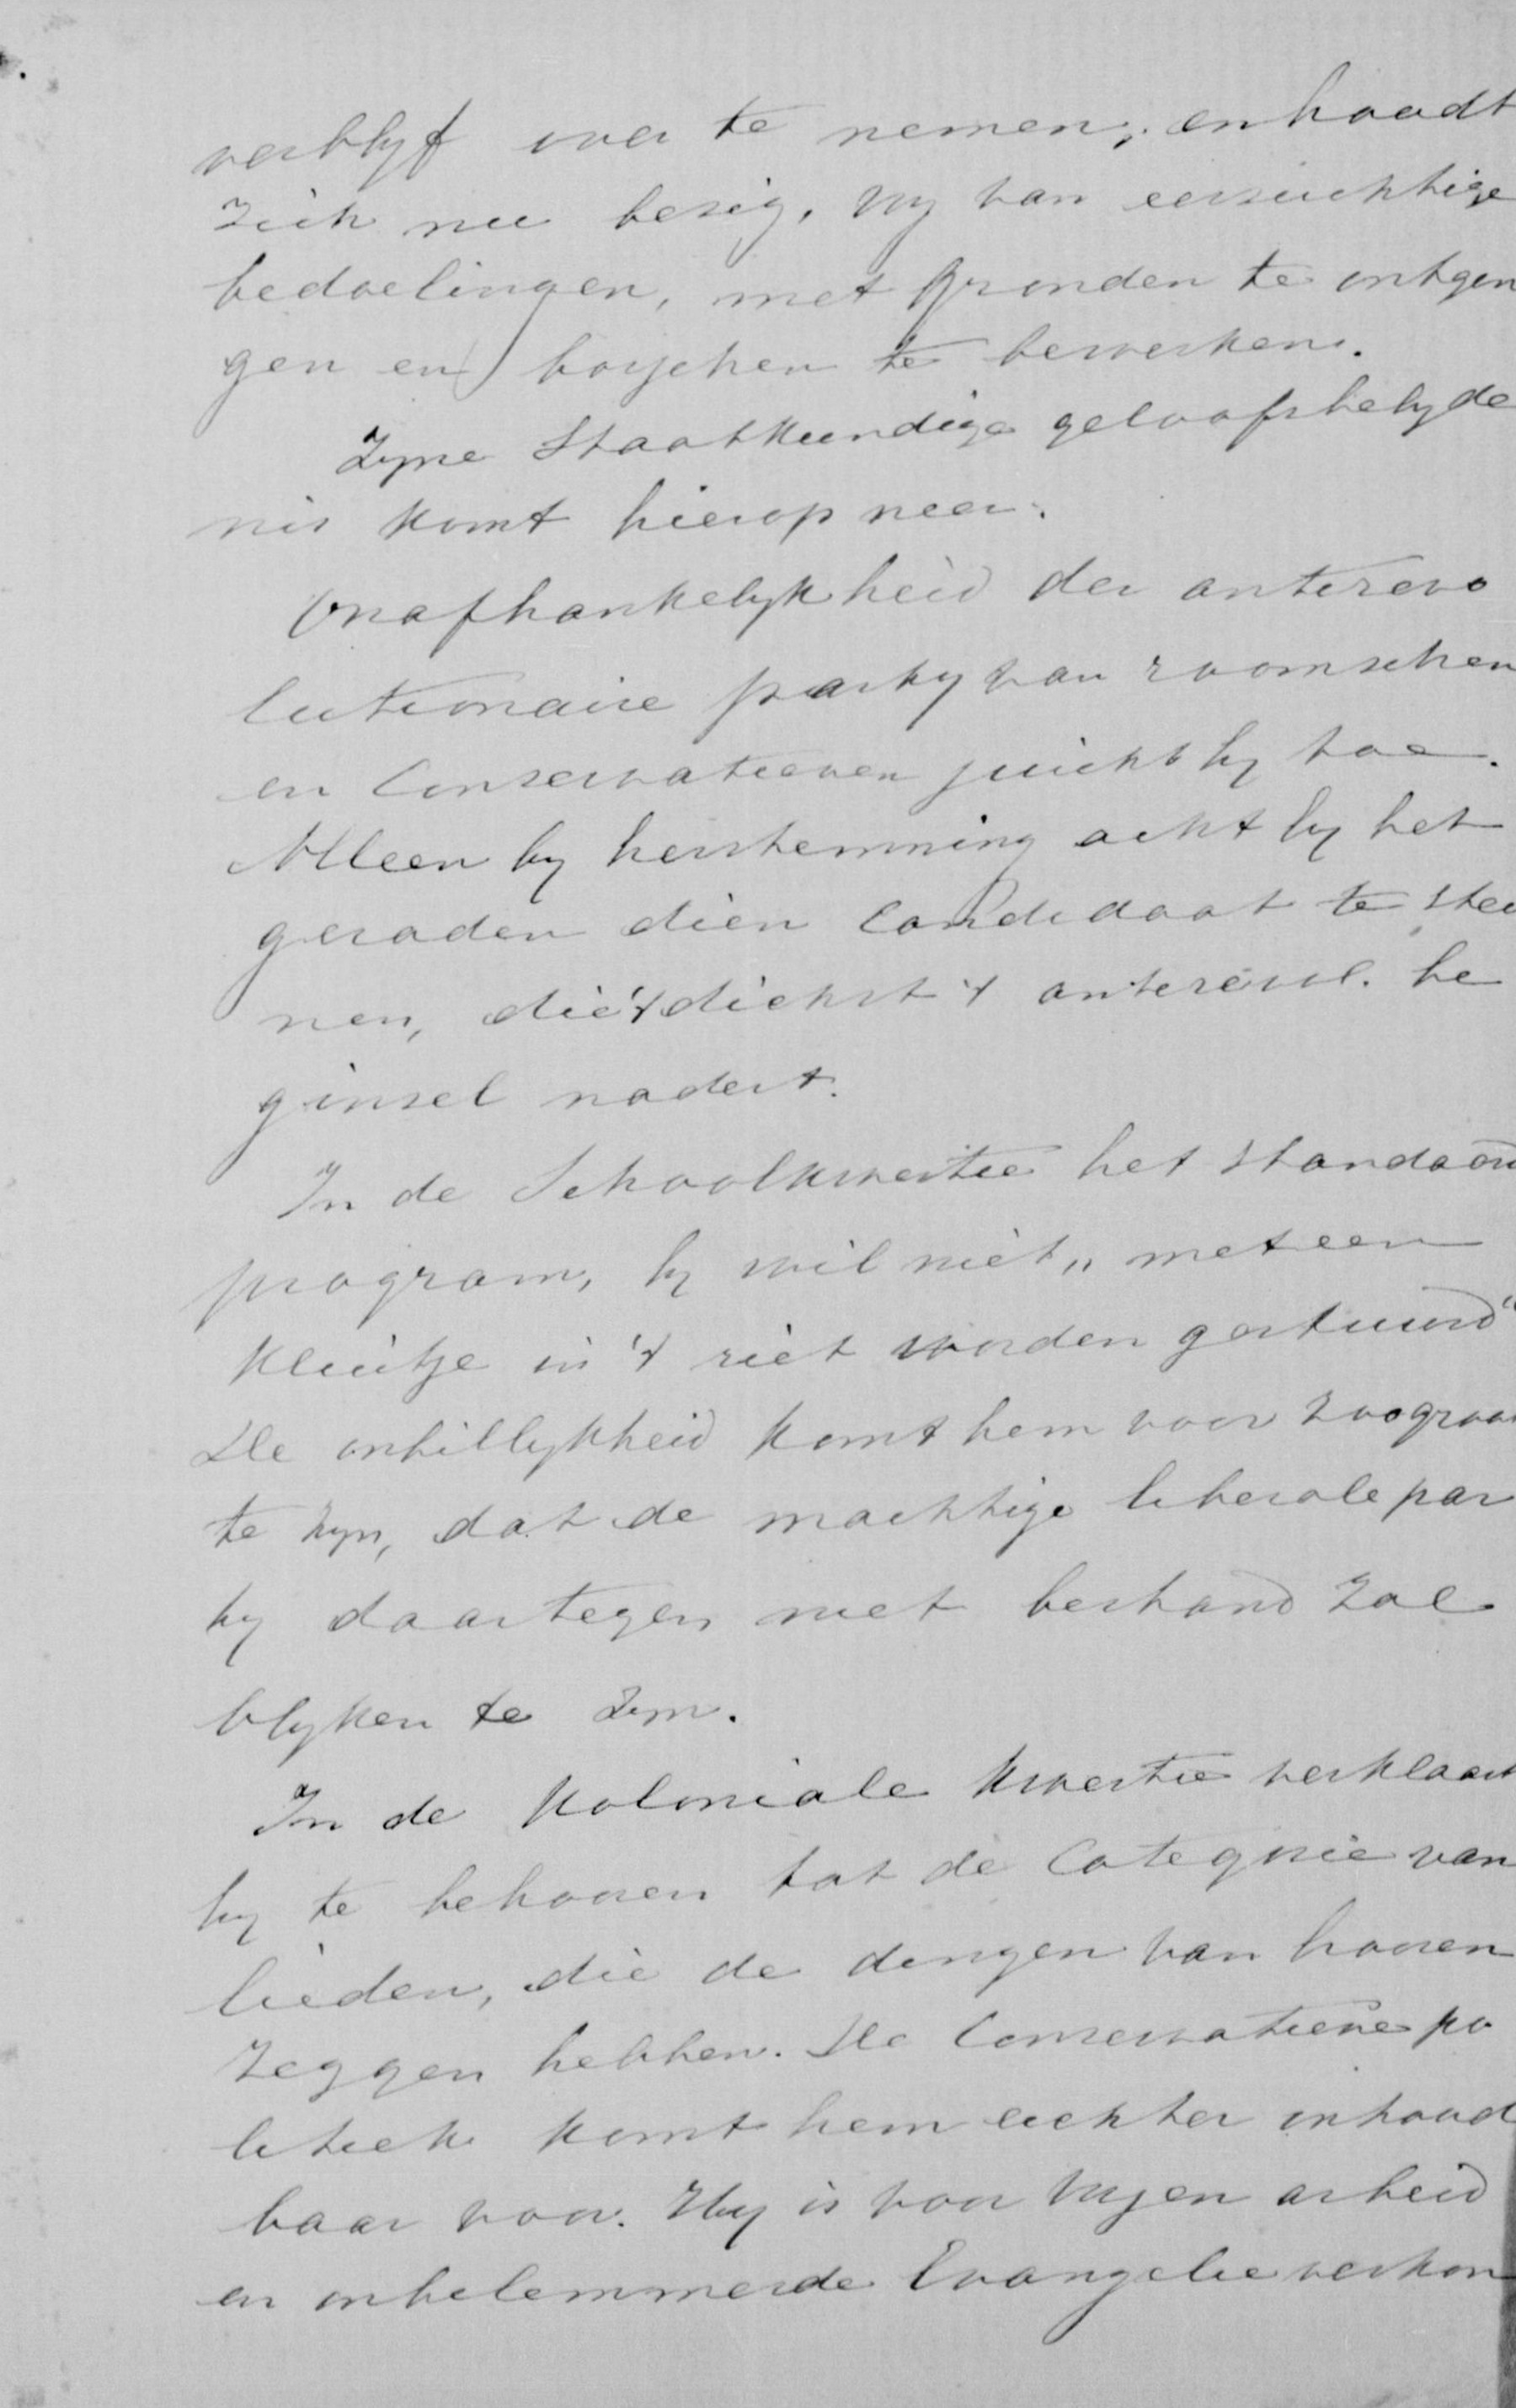 verblyf over te nemen; en houdt
zich nu bezig, vry van eerzuchtige
bedoelingen, met gronden te ontgin
gen en bosschen te bewerken.
Zyne Staatkundige geloofsbelyde
nis komt hierop neer:
Onafhankelykheid der antirevo
lutionaire party van roomschen
en Conservatieven juicht hy toe.
Alleen by herstemming acht hy het
geraden dien Candidaat te steu
nen, die 't dichst 't antirevol. be
ginsel nadert.
In de Schoolkwestie het standaard
program, hy wil niet „met een
kluitje in 't riet worden gestuurd"
De onbillykheid komt hem voor zoo groot
te zyn, dat de machtige liberale par
ty daartegen niet bestand zal
blyken te zyn.
In de Koloniale Kwestie verklaart
hy te behooren tot de Categorie van
lieden, die de dingen van hooren
zeggen hebben. De Conservatieve po
litiek komt hem echter onhoud
baar voor. Hy is voor vryen arbeid
en onbelemmerde Evangelie verkon